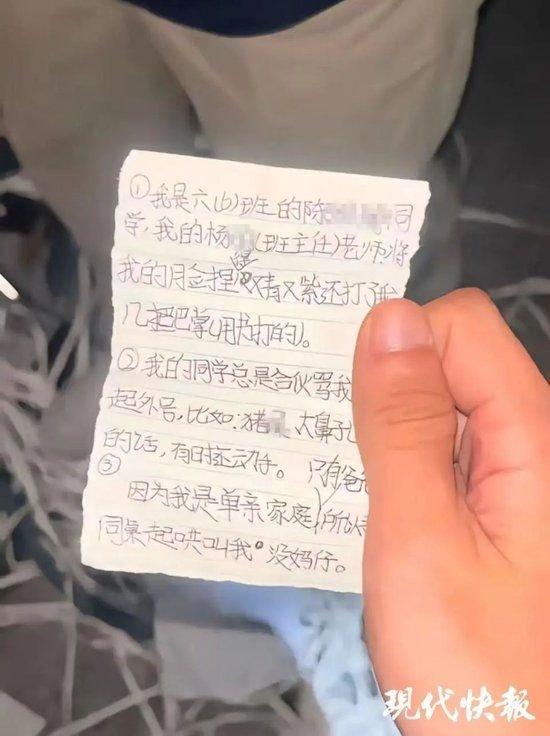 ①我是六(6)班的陈 同
学,我的杨 (班主任)老师将
我的 捏 又青又紫还打了我
几把巴掌(用书打的)。
②我的同学总是合伙骂我
起外号,比如:猪 大鼻子
的话,有时还会
③ 只有爸爸
因为我是单亲家庭,所以
同桌起哄叫我"没妈仔。
现代快报